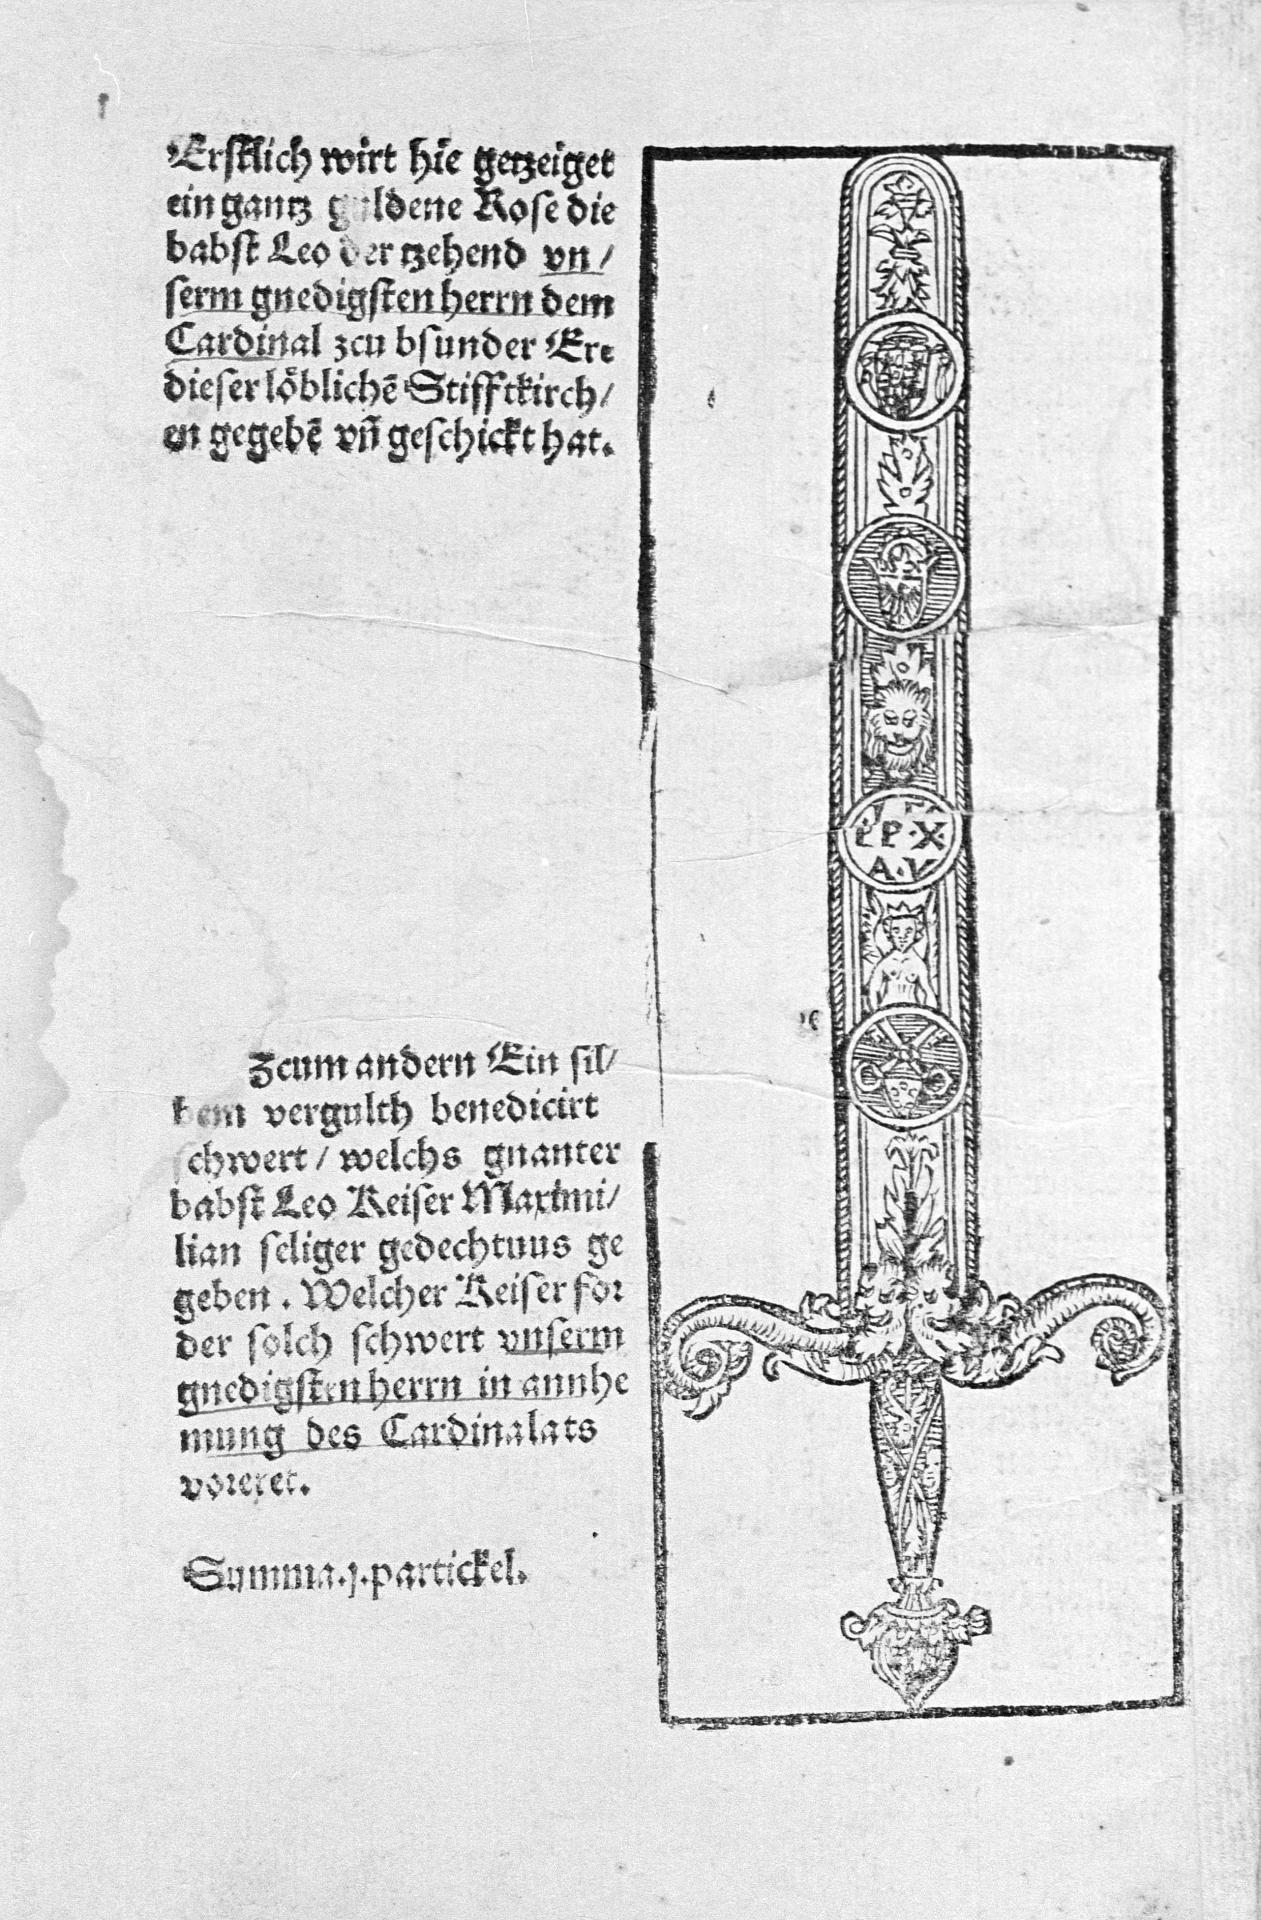 Erstlich wirt hie getzeiget
ein gantz guldene Rose die
babst Leo der tzehend vn/
serm gnedigsten herrn dem
Cardinal zcu bsunder Ere
dieser löblichē Stifftkirch/
en gegebē vñ geschickt hat.
PP·X·
A·V
Zcum andern Ein sil/
bern vergulth benedicirt
schwert / welchs gnanter
babst Leo Keiser Maximi/
lian seliger gedechtnus ge
geben . Welcher Keiser for
der solch schwert vnserm
gnedigsten herrn in annhe
mung des Cardinalats
voreret.
Summa.j.partickel.